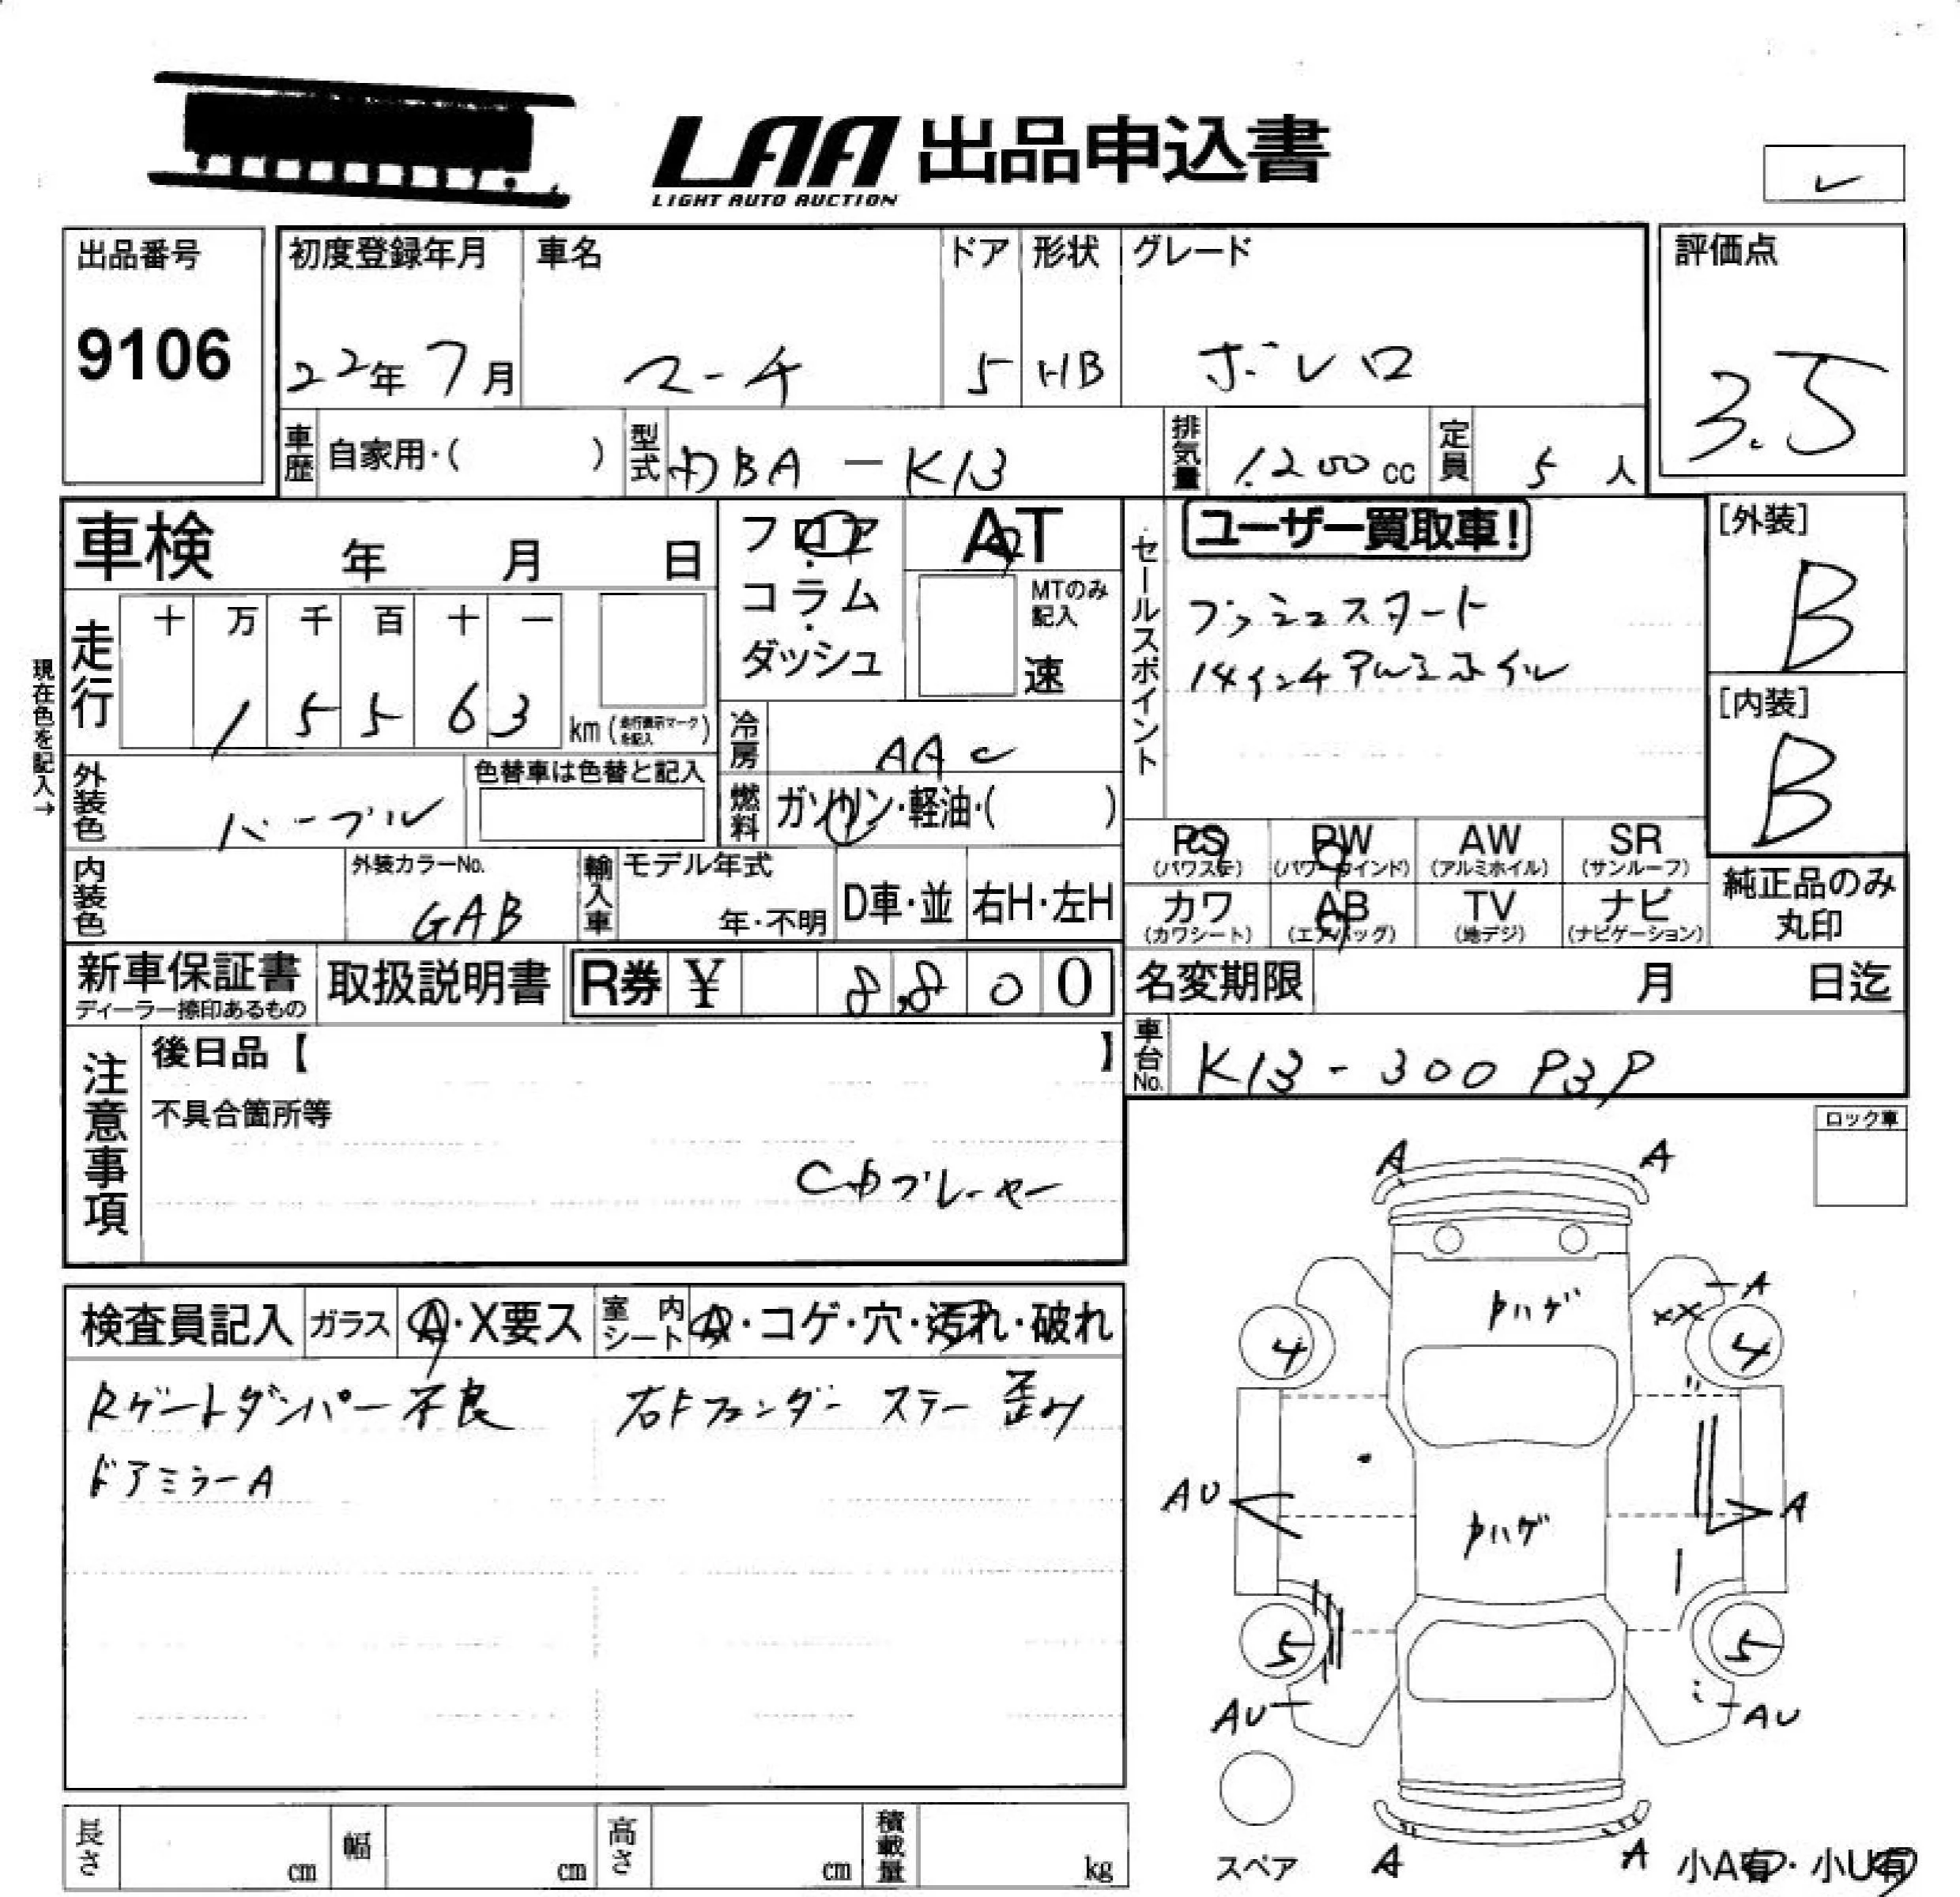 LAA 出品申込書
LIGHT AUTO AUCTION
出品番号
9106
初度登録年月
22年7月
車名
マーチ
ドア
5
形状
HB
グレード
ボレロ
評価点
3.5
車歴
自家用・( )
型式
DBA-K13
排気量
1.200cc
定員
5人
車検 年 月 日
フロア・コラム・ダッシュ
AT
MTのみ記入
速
セールスポイント
ユーザー買取車!
プッシュスタート
14インチアルミホイル
[外装]
B
[内装]
B
現在色を記入→
走行
十 万 千 百 十 一
1 5 5 6 3
km(走行表示マークを記入)
冷房
AAC
燃料
ガソリン・軽油・( )
外装色
パープル
色替車は色替と記入
内装色
外装カラーNo.
GAB
輸入車
モデル年式
年・不明
D車・並
右H・左H
PS
(パワステ)
PW
(パワーウインド)
AW
(アルミホイル)
SR
(サンルーフ)
カワ
(カワシート)
AB
(エアバッグ)
TV
(地デジ)
ナビ
(ナビゲーション)
純正品のみ
丸印
新車保証書
ディーラー捺印あるもの
取扱説明書
R券 ¥ 8,800
名変期限 月 日迄
車台No.
K13-300
注意事項
後日品【 】
不具合箇所等
CDプレーヤー
ロック車
検査員記入
ガラス
A・X要ス
室内シート
A・コゲ・穴・汚れ・破れ
Rゲートダンパー不良
右Fフェンダー ステー 歪み
ドアミラーA
A
A
A
XX
4
4
ハゲ
AU
A
ハゲ
5
5
AU
AU
スペア
A
A
小A有・小U有
長さ
cm
幅
cm
高さ
cm
積載量
kg